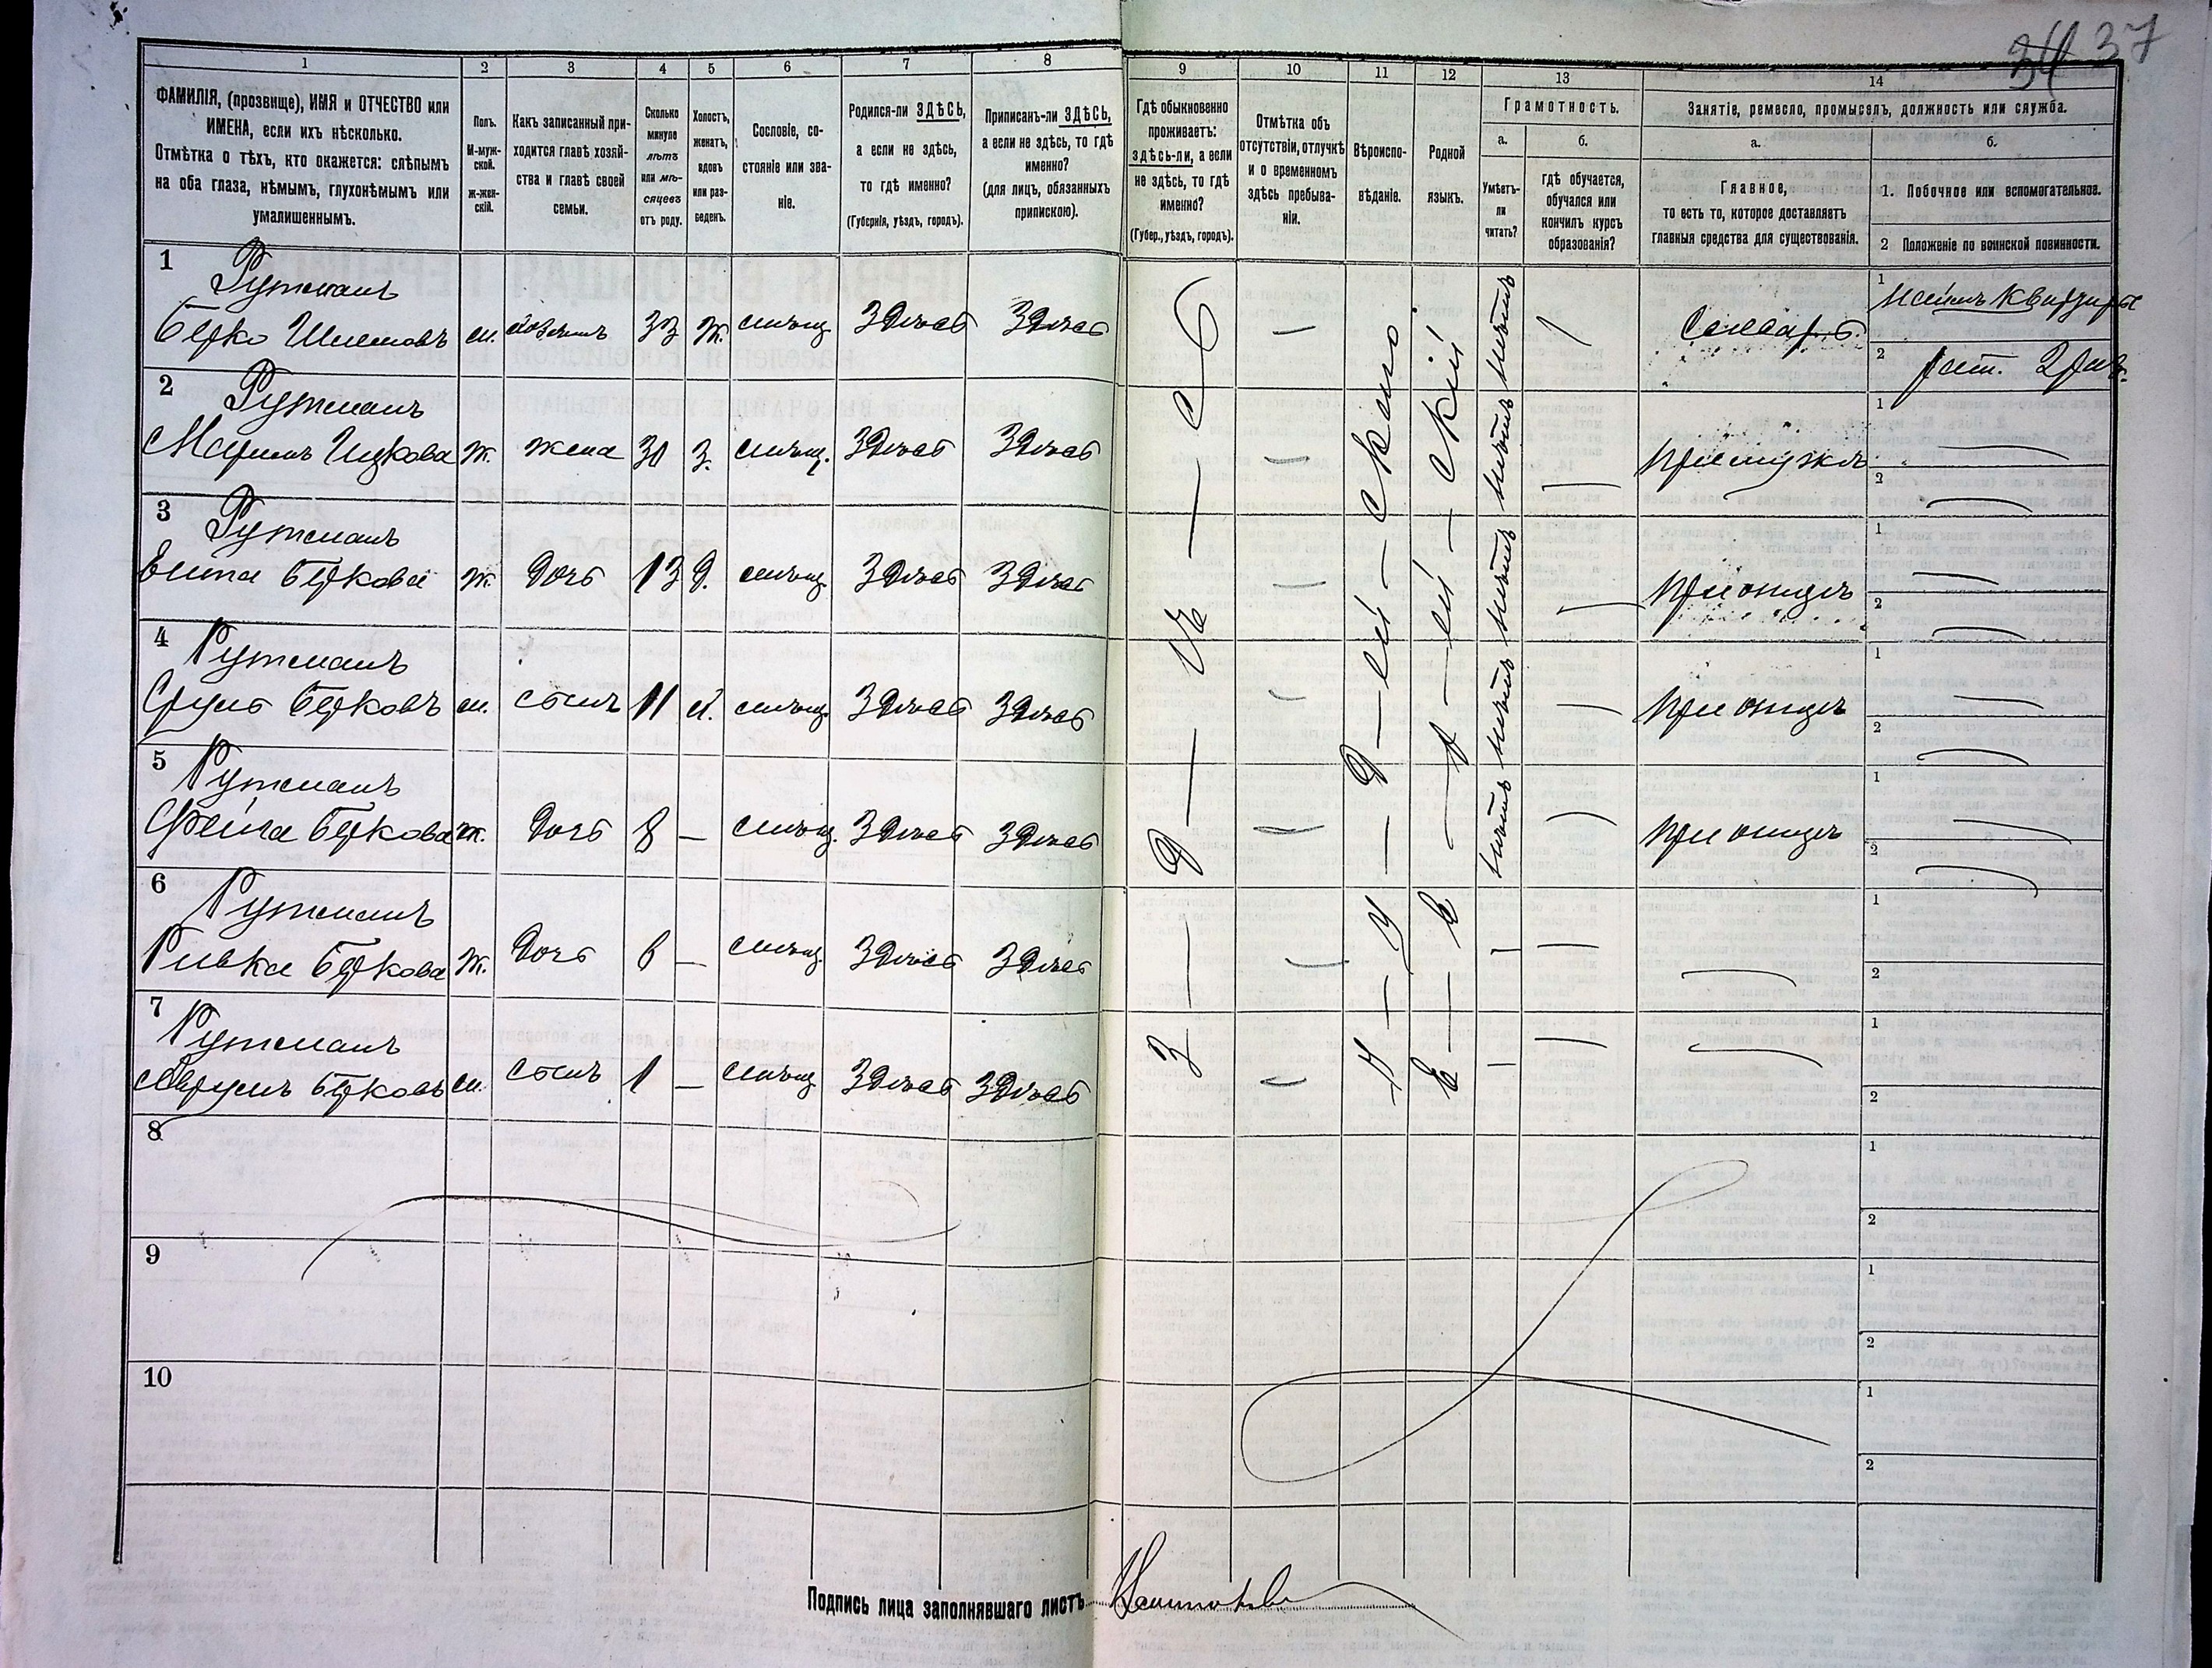 34 37
1 2 3 4 5 6 7 8 9 10 11 12 13 14
ФАМИЛІЯ, (прозвище), ИМЯ и ОТЧЕСТВО или
ИМЕНА, если ихъ нѣсколько.
Отмѣтка о тѣхъ, кто окажется: слѣпымъ
на оба глаза, нѣмымъ, глухонѣмымъ или
умалишеннымъ.
Полъ.
М-муж-
ской.
ж-жен-
скій.
Какъ записанный при-
ходится главѣ хозяй-
ства и главѣ своей
семьи.
Сколько
минуло
лѣтъ
или мѣ-
сяцевъ
отъ роду.
Холостъ,
женатъ,
вдовъ
или раз-
веденъ.
Сословіе, со-
стояніе или зва-
ніе.
Родился-ли ЗДѢСЬ,
а если не здѣсь,
то гдѣ именно?
(Губернія, уѣздъ, городъ).
Приписанъ-ли ЗДѢСЬ,
а если не здѣсь, то гдѣ
именно?
(для лицъ, обязанныхъ
припискою).
Гдѣ обыкновенно
проживаетъ:
здѣсь-ли, а если
не здѣсь, то гдѣ
именно?
(Губер., уѣздъ, городъ).
Отмѣтка объ
отсутствіи, отлучкѣ
и о временномъ
здѣсь пребыва-
ніи.
Вѣроиспо-
вѣданіе.
Родной
языкъ.
Грамотность.
а.
Умѣетъ-
ли
читать?
б.
гдѣ обучается,
обучался или
кончилъ курсъ
образованія?
Занятіе, ремесло, промыселъ, должность или служба.
а.
Главное,
то есть то, которое доставляетъ
главныя средства для существованія.
б.
1. Побочное или вспомогательное.
2 Положеніе по воинской повинности.
1 Рутманъ
Берко Шлемовъ м. хозяинъ 33 ж. мѣщ. Здѣсь Здѣсь — нѣтъ — Столяръ 1 наемъ квартиры
2 рат. 2 раз.
2 Рутманъ
Ж. жена 30 З. мѣщ. Здѣсь Здѣсь — нѣтъ — при мужѣ 1 — 2 —
3 Рутманъ
Ента Беркова ж. дочь 13 д. мѣщ. Здѣсь Здѣсь — нѣтъ — при отцѣ 1 — 2 —
4 Рутманъ
Сруль Берковъ м. сынъ 11 х. мѣщ. Здѣсь Здѣсь — нѣтъ — при отцѣ 1 — 2 —
5 Рутманъ
Фейга Беркова ж. дочь 8 — мѣщ. Здѣсь Здѣсь — нѣтъ — при отцѣ 1 — 2 —
6 Рутманъ
Ривка Беркова Ж. дочь 6 — мѣщ. Здѣсь Здѣсь — — — — 1 2
7 Рутманъ
Берковъ м. сынъ 1 — мѣщ. Здѣсь Здѣсь — — — — 1 2
З — д — ѣ — с — ь
И — у — д — ей — ского
Е — в — р — ей — скій
8 1 2
9 1 2
10 1 2
Подпись лица заполнявшаго листъ